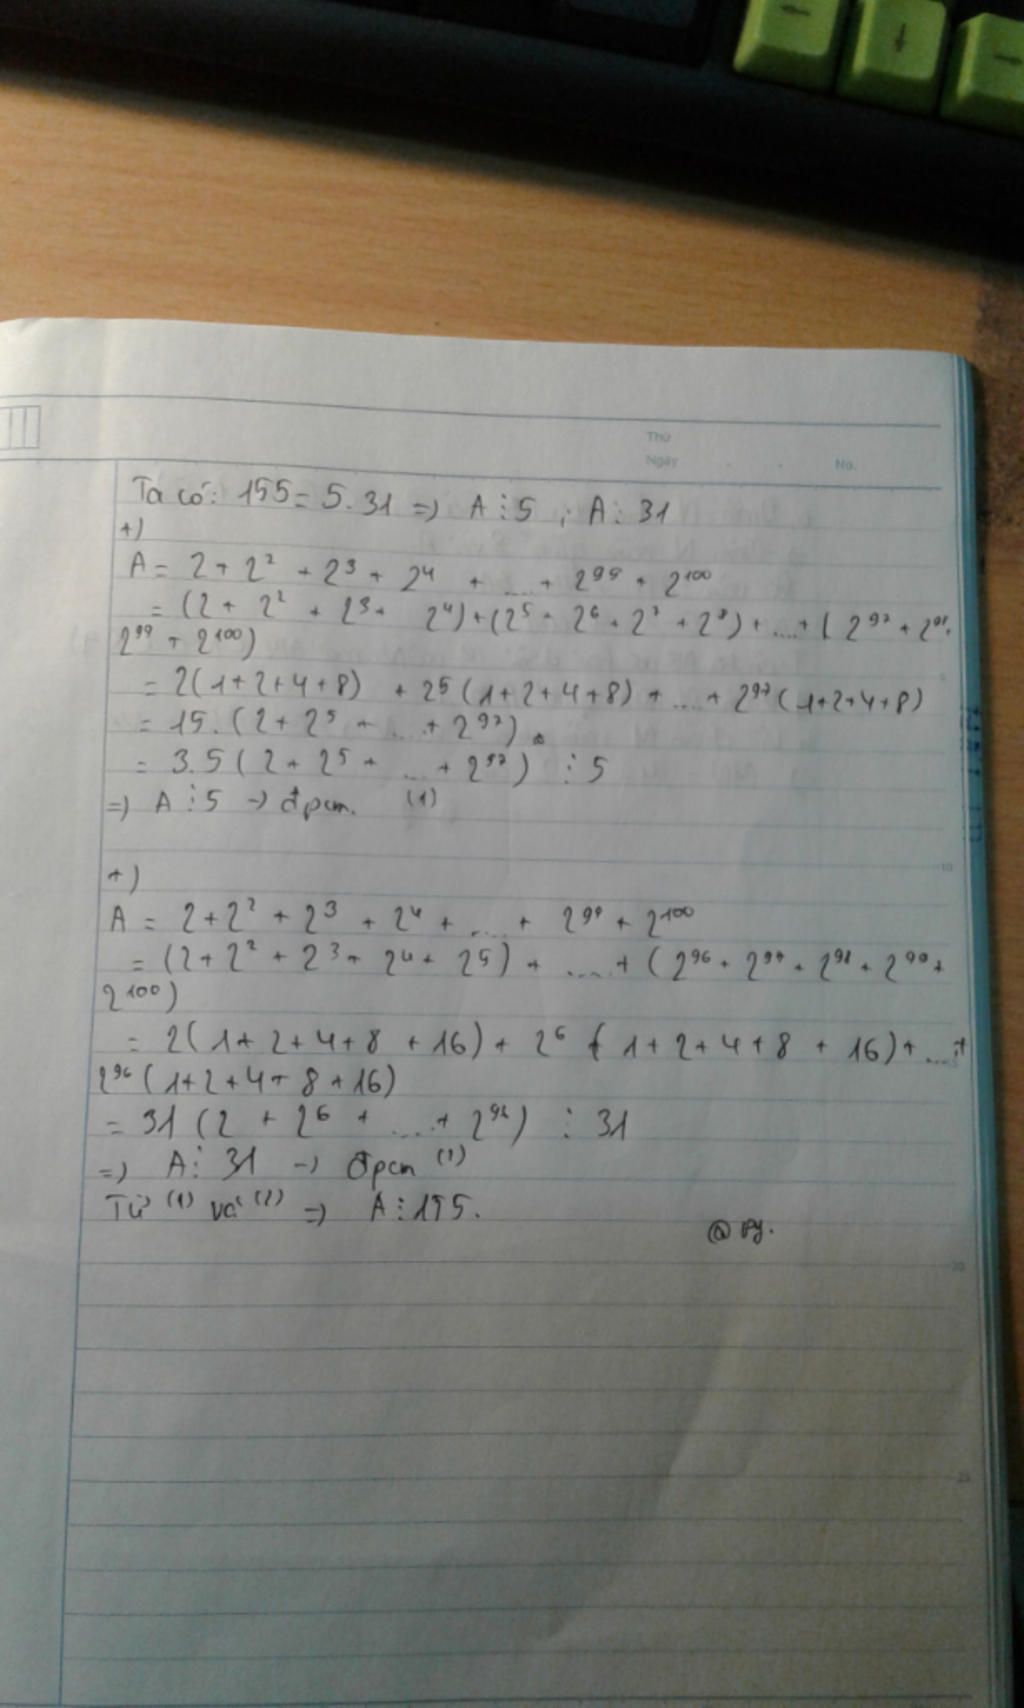 Thứ
Ngày . . No.
Ta có: 155 = 5.31 => A ⋮ 5 ; A ⋮ 31
+)
A = 2 + 2² + 2³ + 2⁴ + .... + 2⁹⁹ + 2¹⁰⁰
= (2 + 2² + 2³ + 2⁴) + (2⁵ + 2⁶ + 2⁷ + 2⁸) + .... + (2⁹⁷ + 2⁹⁸ +
2⁹⁹ + 2¹⁰⁰)
= 2(1+2+4+8) + 2⁵(1+2+4+8) + .... + 2⁹⁷(1+2+4+8)
= 15.(2 + 2⁵ + .... + 2⁹⁷).
= 3.5(2 + 2⁵ + ... + 2⁹⁷) ⋮ 5
=> A ⋮ 5 -> đpcm. (1)
+)
A = 2 + 2² + 2³ + 2⁴ + .... + 2⁹⁹ + 2¹⁰⁰
= (2 + 2² + 2³ + 2⁴ + 2⁵) + .... + (2⁹⁶ + 2⁹⁷ + 2⁹⁸ + 2⁹⁹ +
2¹⁰⁰)
= 2(1+2+4+8+16) + 2⁶(1+2+4+8+16) + .... +
2⁹⁶(1+2+4+8+16)
= 31(2 + 2⁶ + .... + 2⁹⁶) ⋮ 31
=> A ⋮ 31 -> đpcm (2)
Từ (1) và (2) => A ⋮ 155.